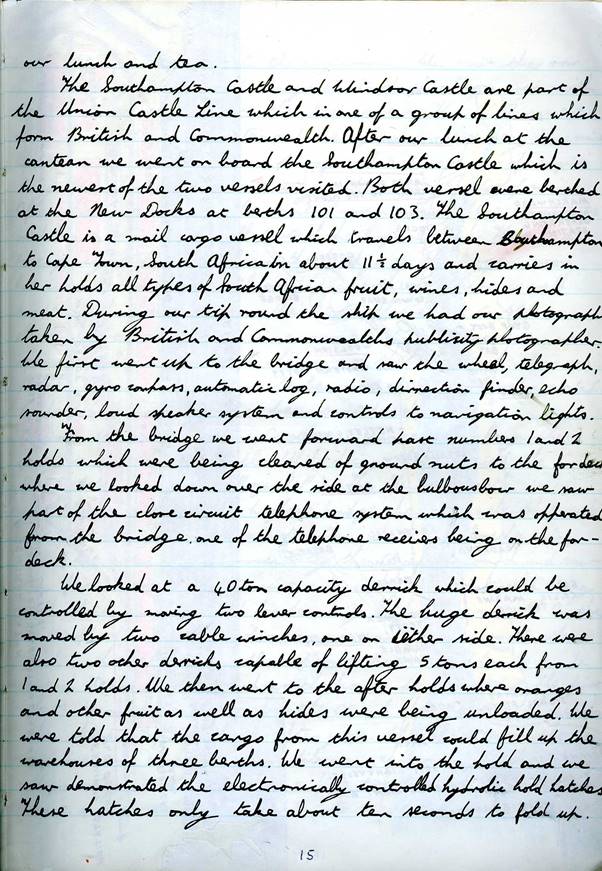 our lunch and tea.
The Southampton Castle and Windsor Castle are part of
the Union Castle Line which in one of a group of lines which
form British and Commonwealth. After our lunch at the
cantean we went on board the Southampton Castle which is
the newest of the two vessels visited. Both vessel were berthed
at the New Docks at berths 101 and 103. The Southampton
Castle is a mail cargo vessel which travels between Southampton
to Cape Town, South Africa in about 11½ days and carries in
her holds all types of South African fruit, wines, hides and
meat. During our tip round the ship we had our photograph
taken by British and Commonwealths publicity photographer.
We first went up to the bridge and saw the wheel, telegraph,
radar, gyro compass, automatic log, radio, dirrection finder, echo
sounder, loud speaker system and controls to navigation lights.
From the bridge we went forward past numbers 1 and 2
holds which were being cleared of ground nuts to the fordeck
where we looked down over the side at the bulbousbow we saw
part of the close circuit telephone system which was opperated
from the bridge. one of the telephone receiers being on the for-
deck.
We looked at a 40 ton capacity derrick which could be
controlled by moving two lever controls. The huge derrick was
moved by two cable winches, one on iether side. There were
also two other derricks capable of lifting 5 tons each from
1 and 2 holds. We then went to the after holds where oranges
and other fruit as well as hides were being unloaded. We
were told that the cargo from this vessel could fill up the
warehouses of three berths. We went into the hold and we
saw demonstrated the electronically controlled hydrolic hold hatches
These hatches only take about ten seconds to fold up.
15